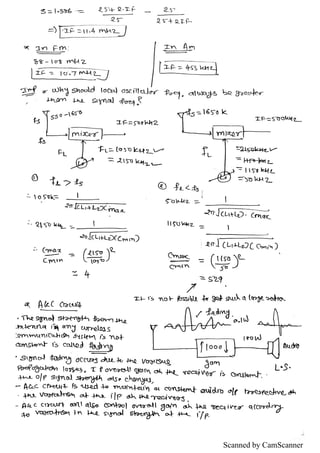 3 = 1.386 = 25+2.IF / 25 - 25 / 25+2IF.
=) IF = 11.4 MHz
* In Fm:
88 - 108 MHz
IF = 10.7 MHz
In Am
IF = 455 kHz
Imp * why should local oscillator freq, always be greater
than the signal freq?
550-1650
fs
IF=500kHz
mixer
fs
FL
FL = 1050kHz
= 2150 kHz
fs = 1650 k
IF=500kHz
mixer
fL
= 1150 kHz
= 50 kHz
① fL > fs
∴ 1050k = 1 / 2π√(L1+L2)Cmax
∴ 2150 kHz = 1 / 2π√(L1+L2)(Cmin)
∴ Cmax / Cmin = (2150 / 1050)²
= 4
② fL < fs
50kHz = 1 / 2π√(L1+L2).Cmax
1150kHz = 1 / 2π√(L1+L2)(Cmin)
Cmax / Cmin = (1150 / 50)²
= 529
It is not possible to get such a large
* AGC Circuit
• The signal strength from the
antenna in any wireless
communication system is not
constant is called fading
fading
100W
1000
Audio
gain
L.S.
• Signal fading occurs due to the various
Propagation losses, If overall gain of the receiver is constant.
the o/p signal strength also changes,
- AGC circuit is used to maintain a constant audio o/p irrespective of
the variation at the i/p of the receivers.
- AGC circuit will also control overall gain of the receiver according
to variation in the signal strength at the i/p.
Scanned by CamScanner